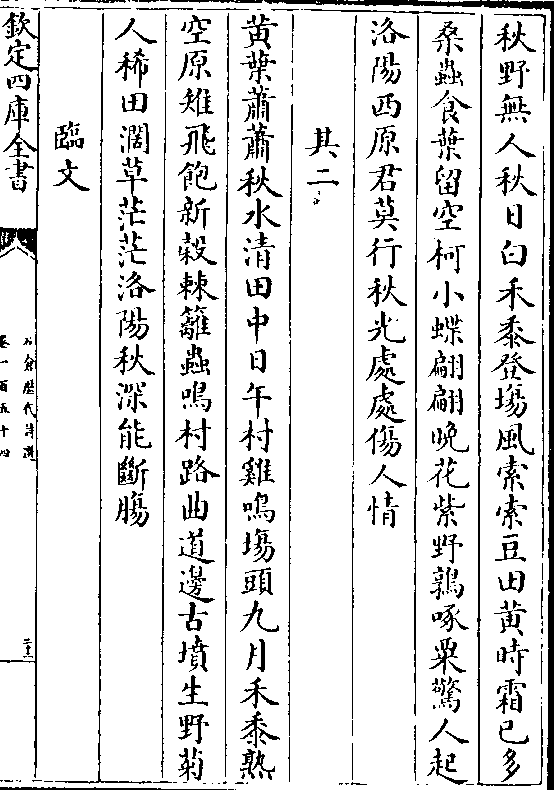 秋野無人秋日白禾黍登場風索索豆田黄時霜已多
桑蟲食葉留空柯小蝶翩翩晚花紫野鶉啄粟驚人起
洛陽西原君莫行秋光處處傷人情
其二
黄葉蕭蕭秋水清田中日午村雞鳴塲頭九月禾黍熟
空原雉飛飽新穀棘籬蟲鳴村路曲道邊古墳生野菊
人稀田濶草茫茫洛陽秋深能斷腸
臨文
欽定四庫全書
石倉歷代詩選
卷一百五十四